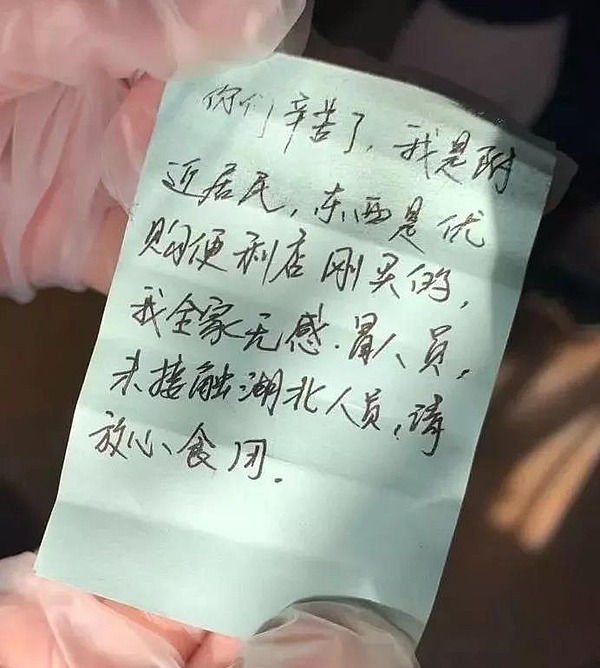 你们辛苦了，我是附
近居民，东西是优
购便利店刚买的，
我全家无感冒人员，
未接触湖北人员，请
放心食用.